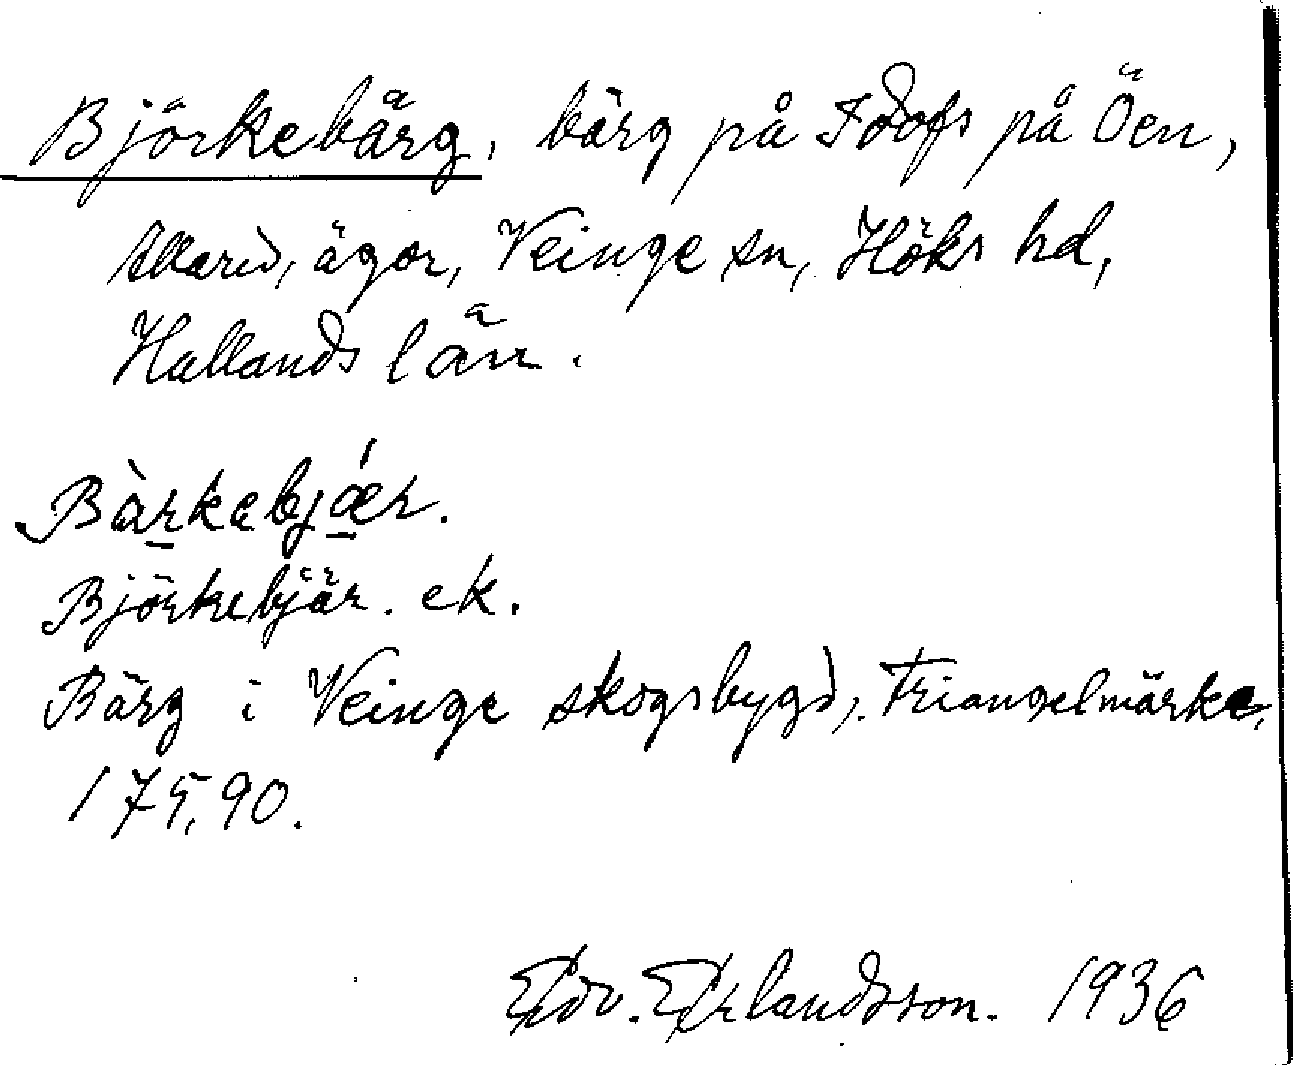 Björkebärg, bärg på Idofs på Öen,
Allarid, ägor, Veinge sn, Höks hd,
Hallands län.
Bàrkebjǽr.
Björkebjär. ek.
Bärg i Veinge skogsbygd, Triangelmärke,
175,90.
Edv. Erlandsson. 1936